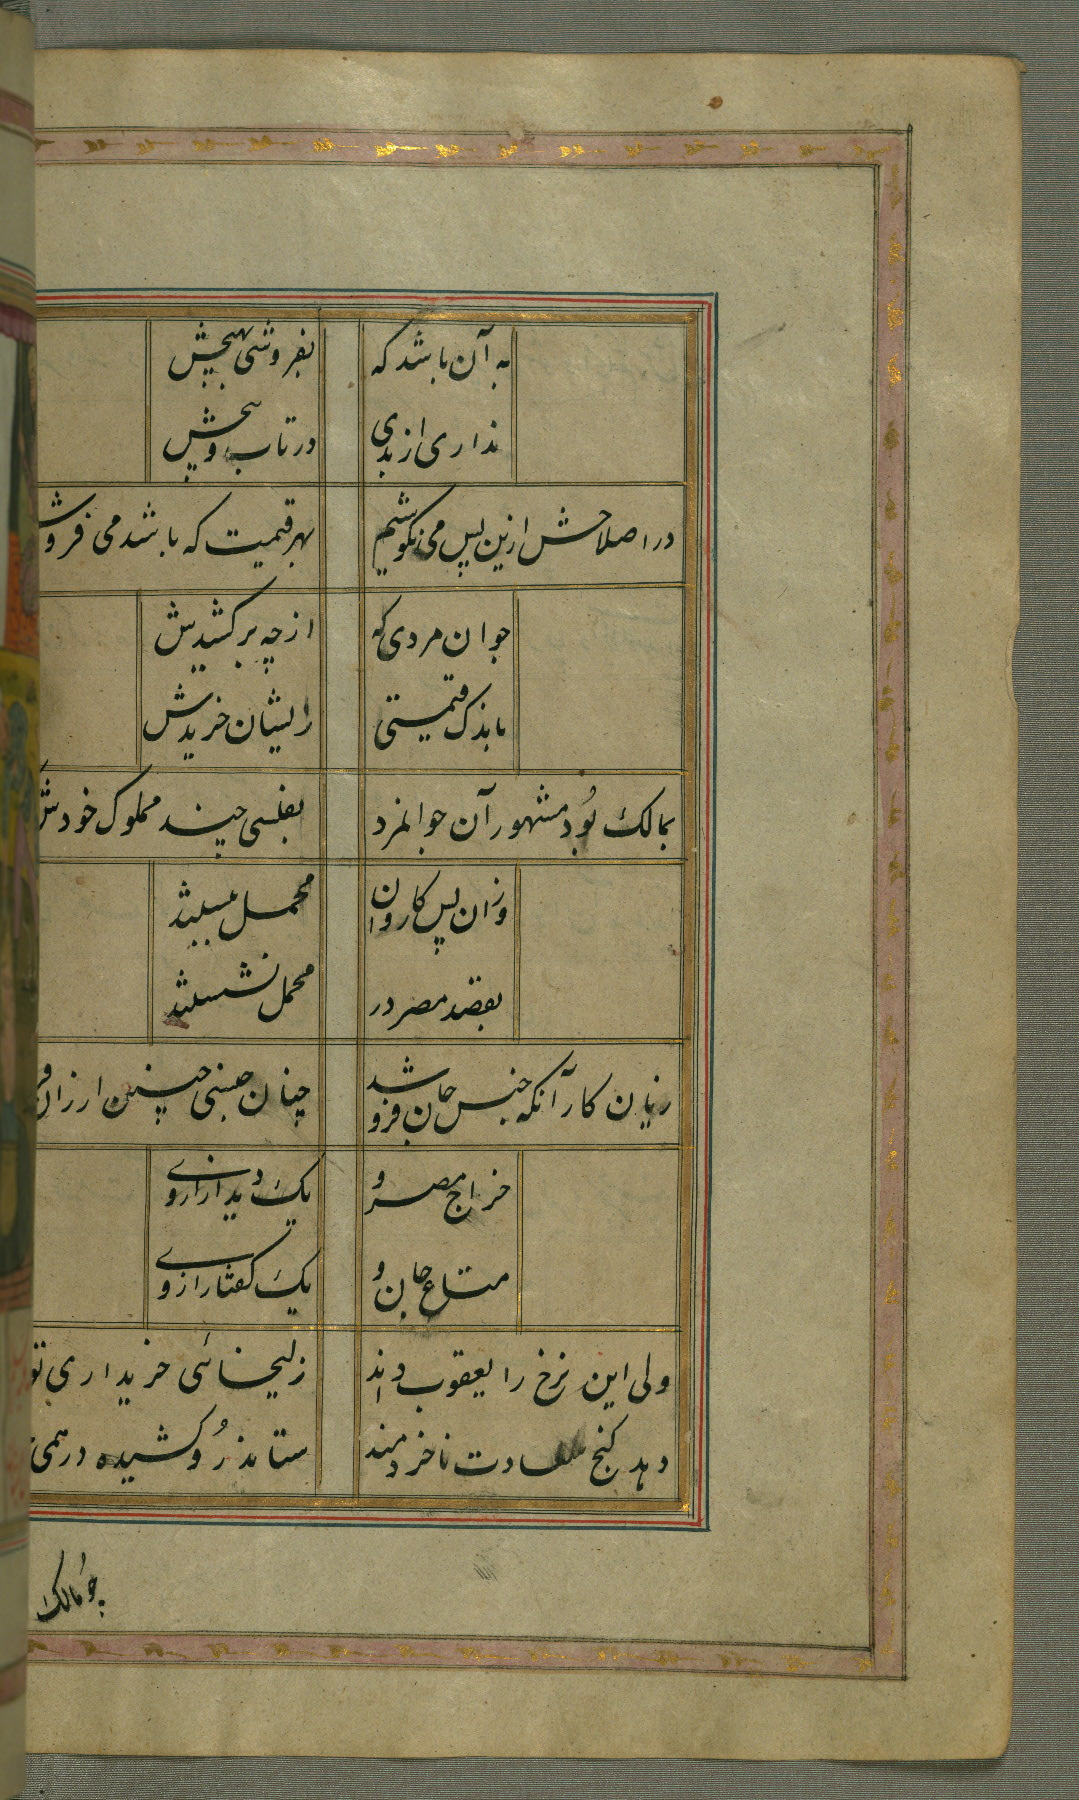 به آن باشد که بفروشی بهیچش
نداری از بدی در تاب و پیچش
در اصلاحش ازین پس می نکوشیم بهر قیمت که باشد می
جوان مردی که از چه بر کشیدیش
باندک قیمتی زایشان خریدش
بمالک بُود مشهور آن جوانمرد بفلسی چند مملوک خودش
وزان پس کاروان محمل ببستند
بقصد مصر در محمل نشستند
زیان کار آنکه جنس جان فروشد چنان جنسی چنین ارزان
خراج مصر و یک دیدار از وی
متاع جان و یک گفتار از وی
ولی این نرخ را یعقوب داند زلیخائی خریداری
دهد گنج سعادت ناخردمند ستاند زو کشیده درهمی
چو مالک